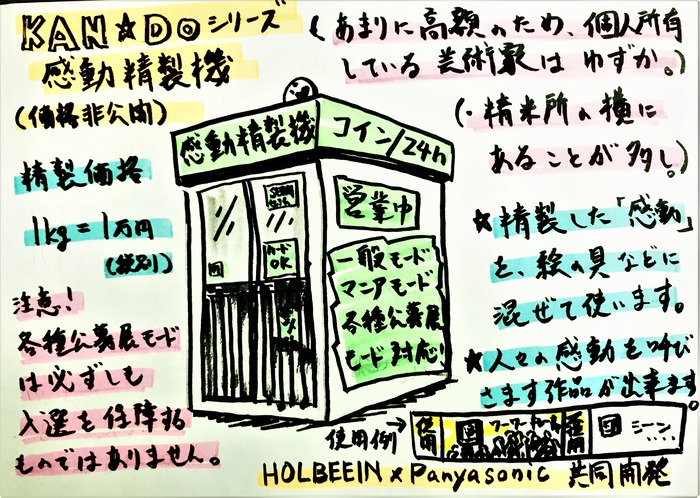 KAN★Doシリーズ
感動精製機
(価格非公開)
(あまりに高額のため、個人所有
している芸術家はわずか。)
(・精米所の横に
あることが多し)
精製価格
1kg=1万円
(税別)
注意!
各種公募展モード
は必ずしも
入選を保障する
ものではありません。
感動精製機
コイン/24h
営業中
カード
OK
一般モード
マニアモード
各種公募展
モード対応!
★精製した「感動」
を、絵の具などに
混ぜて使います。
★人々の感動を呼び
さます作品が出来ます。
使用例→
使用
シーン....
HOLBEEIN×Panyasonic 共同開発